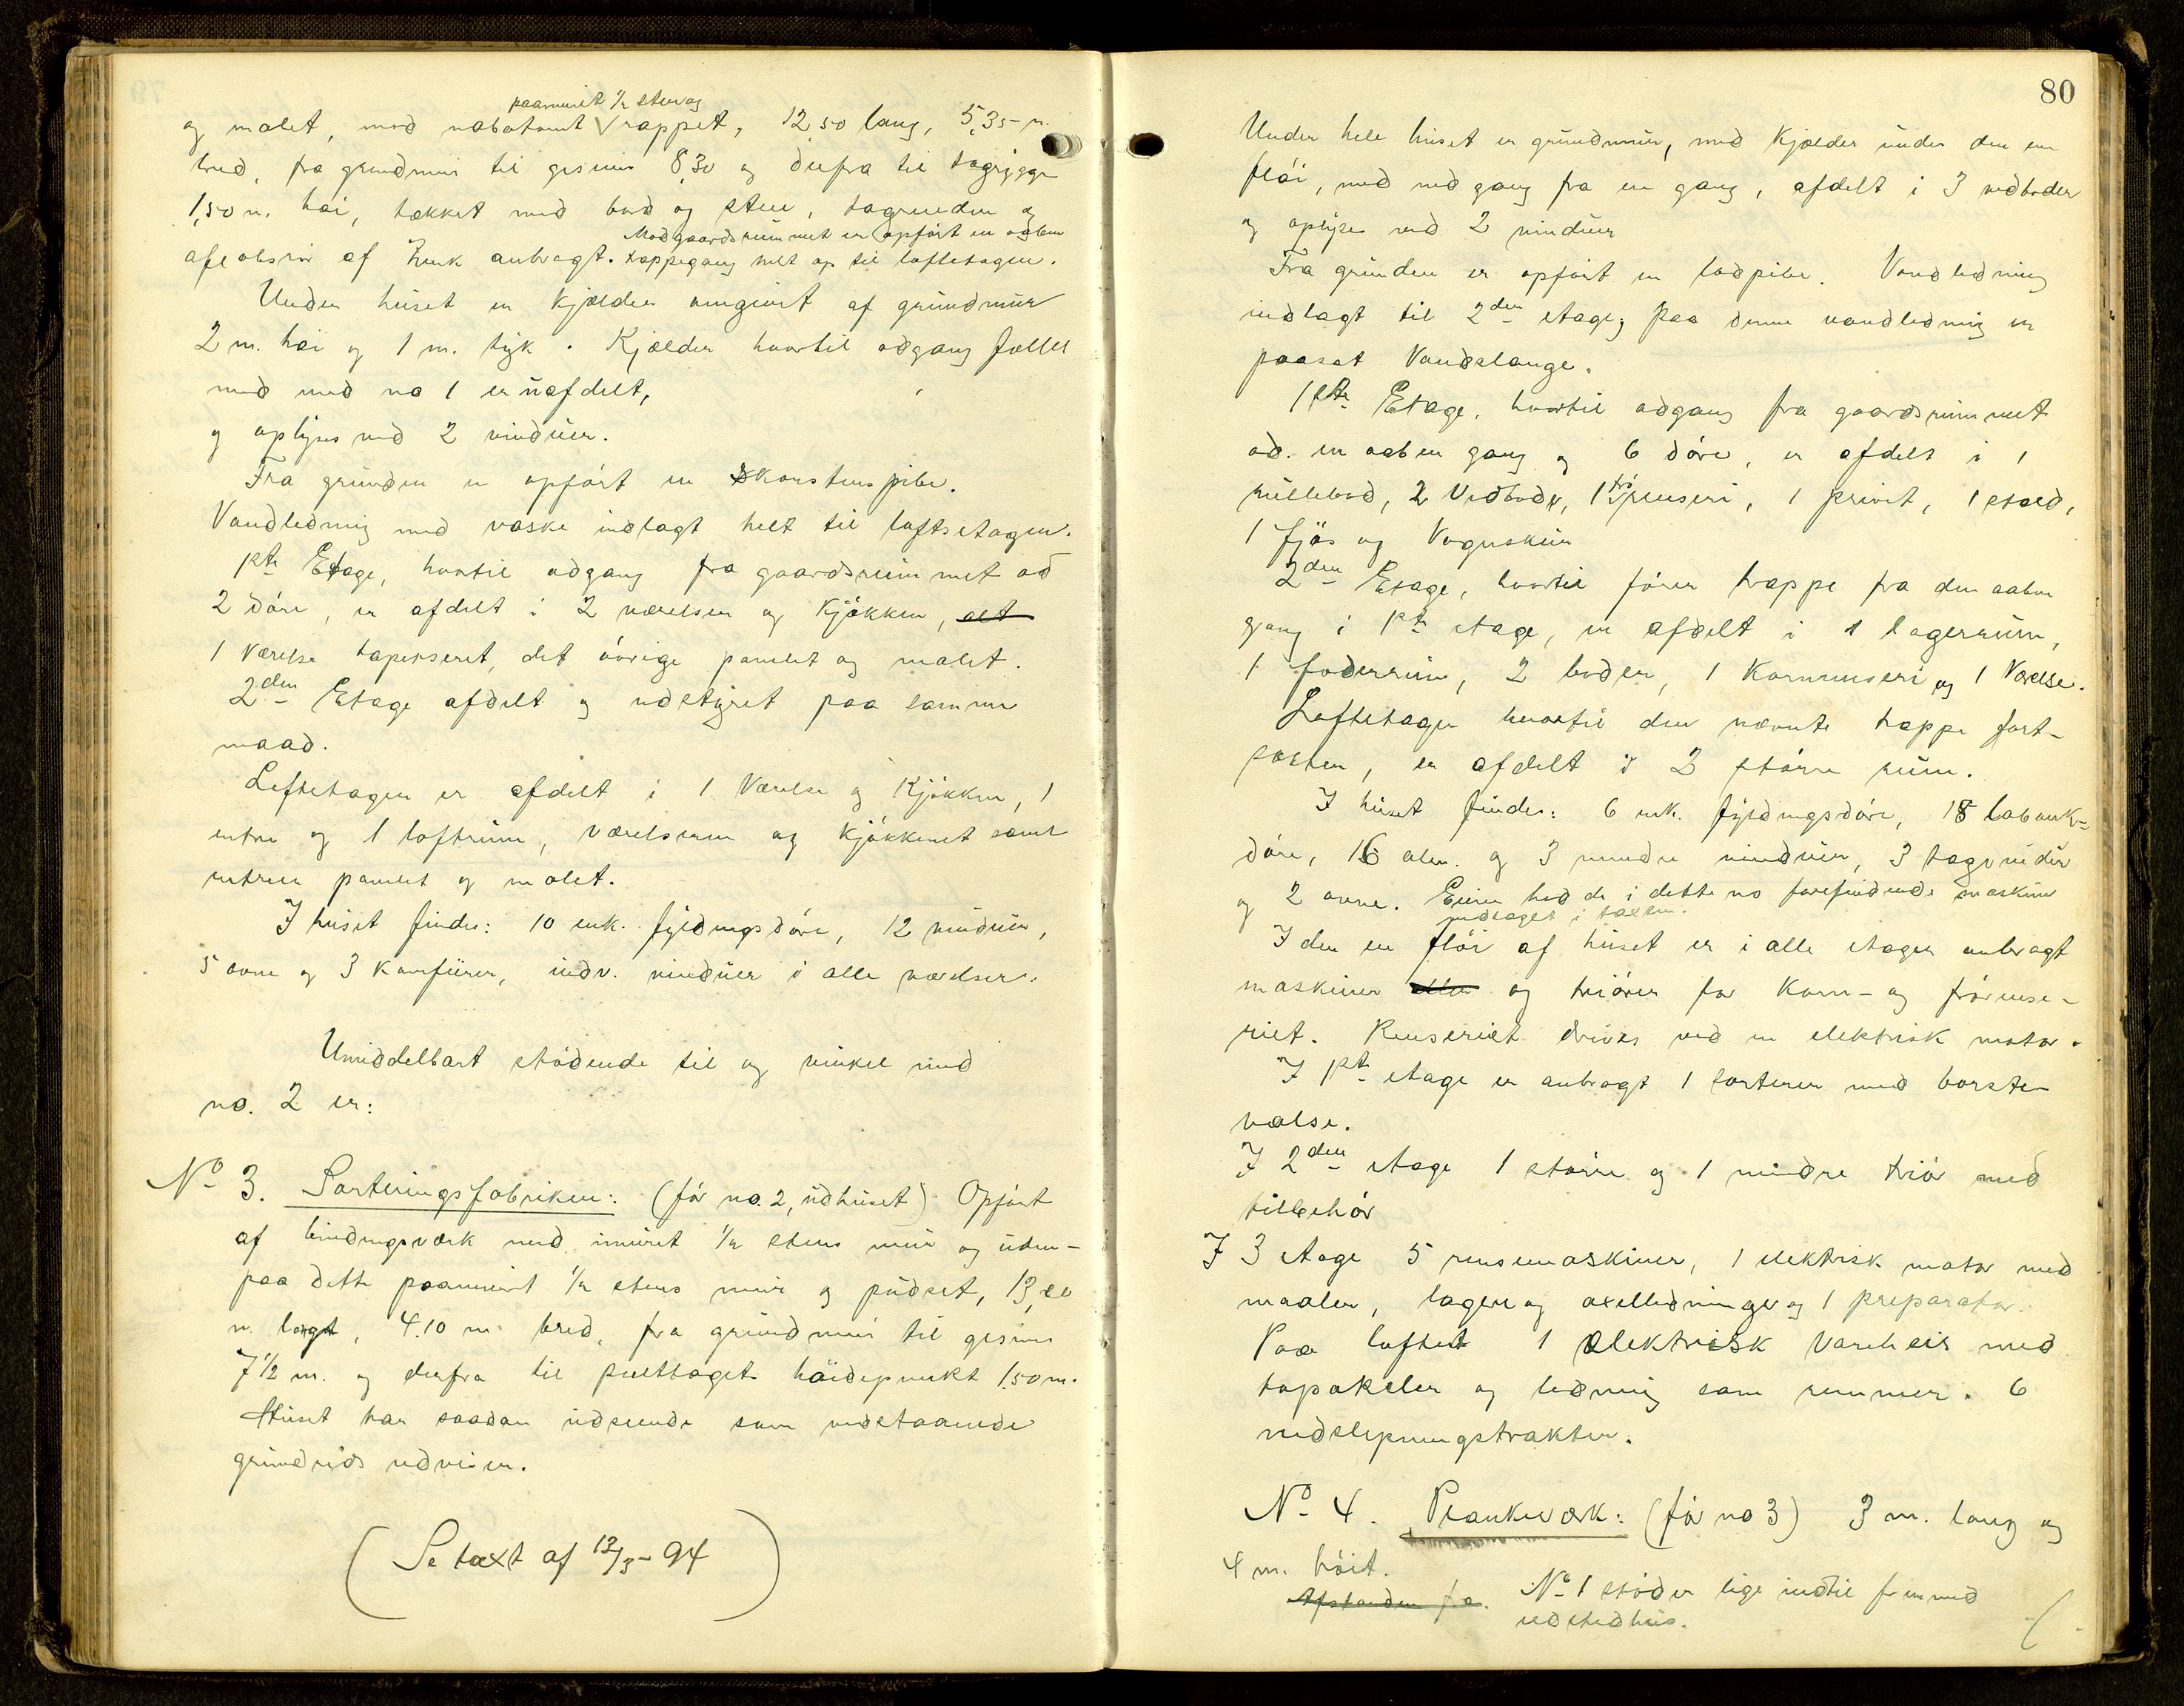 paamuret 1/2 sten og
og malet, mod nabotomt rappet, 12,50 lang, 5,35 m.
bred, fra grundmur til gesims 8,30 og derfra til tagrygge
1,50 m. høi, tækket med bord og sten, tagrender og
Mod gaardsrummet er opført en aaben
afløbsrør af Zink anbragt. trappegang helt op til loftetagen.
Under huset er kjælder omgivet af grundmur
2 m. høi og 1 m. tyk. Kjælder hvortil adgang fælles
med med no 1 er uafdelt,
og oplyses ved 2 vinduer.
Fra grunden er opført en skorstenspibe.
Vandledning med vaske indlagt helt til loftsetagen.
1ste Etage, hvortil adgang fra gaardsrummet ad
2 døre, er afdelt i 2 værelser og kjøkken, alt
1 værelse tapetseret, det øvrige panelet og malet.
2den Etage afdelt og udstyret paa samme
maad.
Loftetagen er afdelt i 1 Værelse og Kjøkken, 1
entre og 1 loftrum, værelserne og kjøkkenet samt
entreer panelet og malet.
I huset findes: 10 enk. fyldningsdøre, 12 vinduer,
5 ovne og 3 komfürer, indv. vinduer i alle værelser.
Umiddelbart stødende til og vinkel med
no. 2 er:
No 3. Sorteringsfabriken: (før no. 2, udhuset) Opført
af bindingsværk med imuret 1/2 stens mur og uden-
paa dette paamuret 1/2 stens mur og pudset, 13,
m. langt, 4.10 m. bred, fra grundmur til gesims
7 1/2 m. og derfra til pulttagets høidepunkt 1.50 m.
Huset har saadan udseende som vedstaaende
grundrids udviser.
(Se taxt af 12/3-94)
80
Under hele huset er grundmur, med Kjælder under den ene
fløi, med nedgang fra en gang, afdelt i 3 vedboder
og oplyses ved 2 vinduer
Fra grunden er opført en lodpibe. Vandledning
indlagt til 2den etage; paa denne vandledning er
paasat Vandslange.
1ste Etage, hvortil adgang fra gaardsrummet
ad. en aaben gang og 6 døre, er afdelt i 1
rullebod, 2 Vedboder, 1 frørenseri, 1 privet, 1 stald,
1 fjøs og Vognskur
2den Etage, hvortil fører trappe fra den aabne
gang i 1ste etage, er afdelt i 1 lagerrum,
1 foderrum, 2 boder, 1 Kornrenseri og 1 Værelse.
Loftetagen hvortil den nævnte trappe fort-
sætter, er afdelt i 2 større rum.
I huset findes: 6 enk. fyldningsdøre, 18 labank-
døre, 16 alm. og 3 mindre vinduer, 3 tagvinduer
og 2 ovne. Eieren had de i dette no forefindende maskiner
medtaget i taxten.
I den ene fløi af huset er i alle etager anbragt
maskiner eller og triører for Korn- og frørense-
riet. Renseriet drives ved en elektrisk motor.
I 1ste etage er anbragt 1 sorterer med børste-
valse.
I 2den etage 1 større og 1 mindre triør med
tilbehør
I 3 etage 5 rensemaskiner, 1 elektrisk motor med
maaler, lagere og axelledninger og 1 preparator.
Paa loftet 1 elektrisk vareheis med
topaksler og ledning som remmer. 6
nedslepningstrakter.
No 4. Plankeværk: (før no 3) 3 m. lang og
4 m. høit.
Afstanden fra. No 1 støder lige indtil fremmed